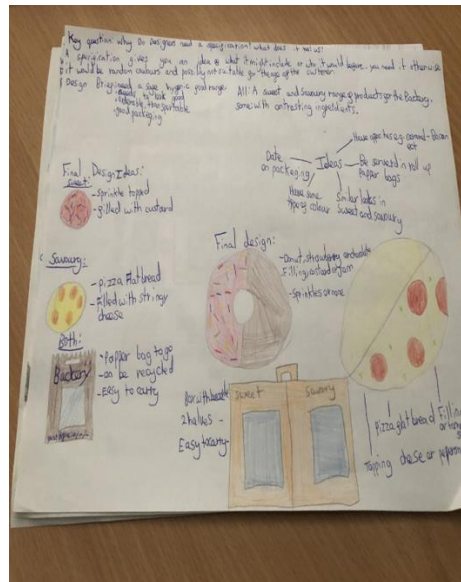 Key question: why do designers need a specification? what does it tell us?
A specification gives you an idea of what it might include or who it would be for. you need it otherwise
it would be random colours and possibly not suitable for the age of the customer.
Design Brief: need a safe, hygenic food range.
- needs to look good
- transportable
- good packaging
All: A sweet and savoury range of products for the Backery.
some with contrasting ingredients.
Have opposites e.g. almond - Bacon
ect
Date
on packaging
Ideas
Be served in roll up
Papper bags
Have some
type of colour
Similar looks in
Sweet and savoury
Final Design Ideas:
Sweet:
- sprinkle topped
- filled with custard
Savoury:
- pizza flat bread
- Filled with stringy
cheese
Both:
Backery
- Papper bag to go
- can be recycled
- Easy to carry
Final design:
- Donut, strawberry or chocolate
- Filling, custard or jam
- Sprinkles or none
Box with
2 halves -
Easy to carry -
sweet
savoury
Pizza flat bread
Filling
Topping cheese or